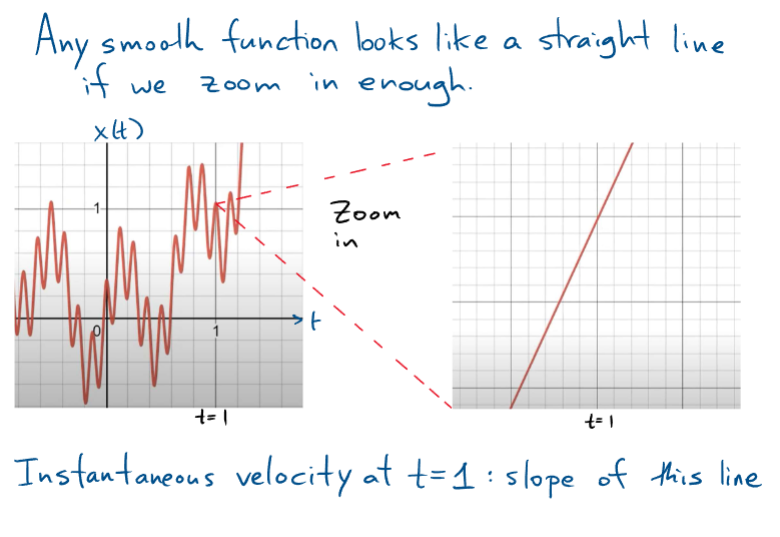 Any smooth function looks like a straight line
if we zoom in enough.
x(t)
1
Zoom
in
0
1
t
t=1
t=1
Instantaneous velocity at t=1 : slope of this line